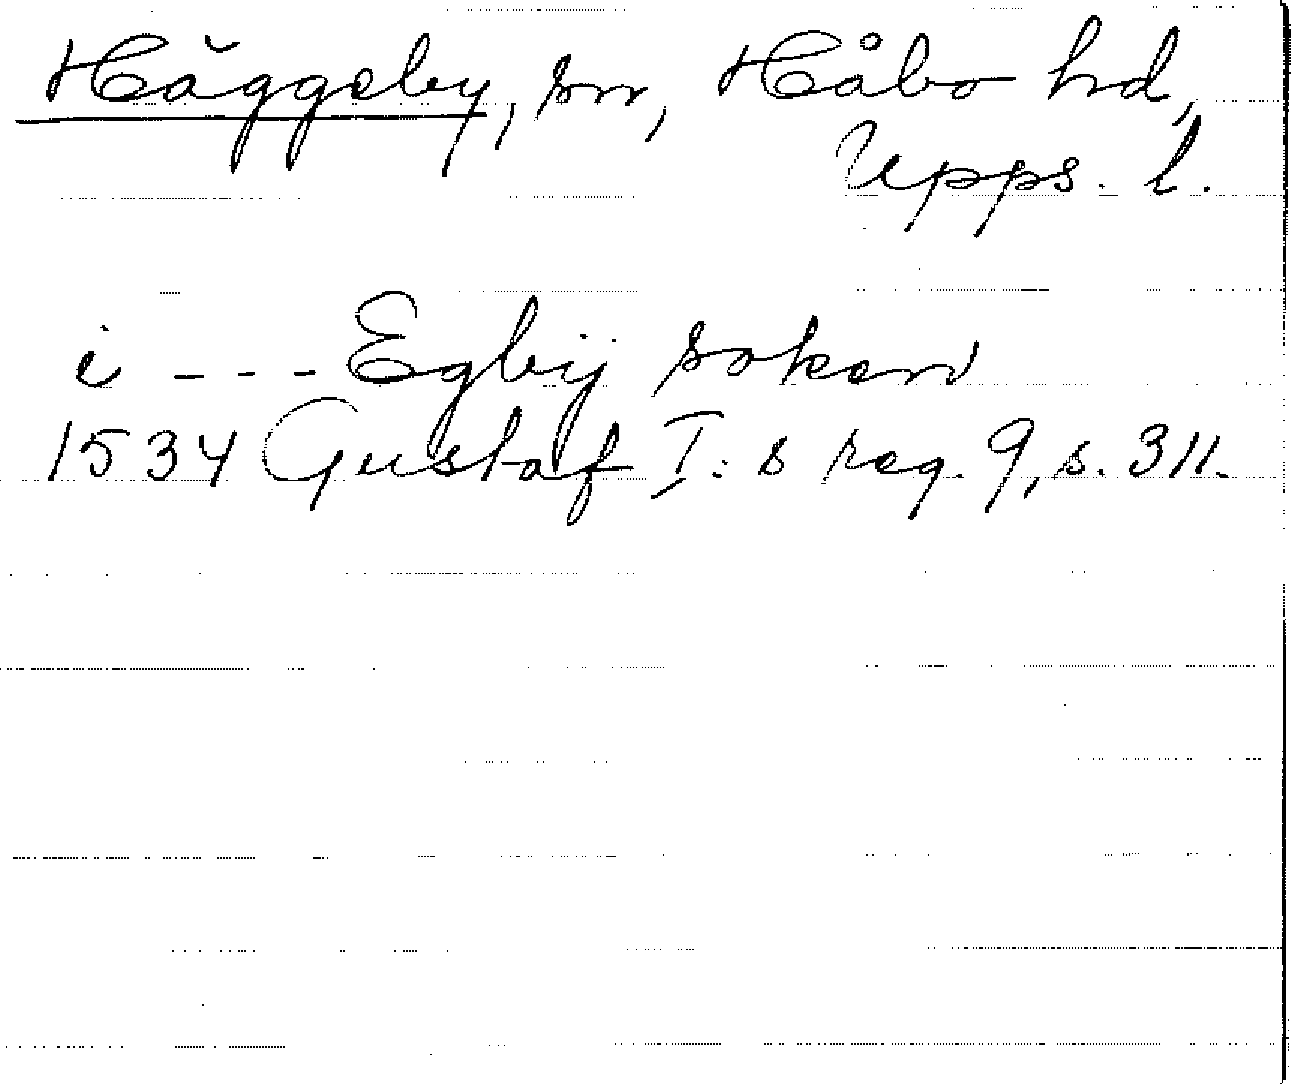 Häggeby, sn, Håbo hd,
Upps. l.
i --- Egbÿ soken
1534 Gustaf I:s reg. 9, s. 311.